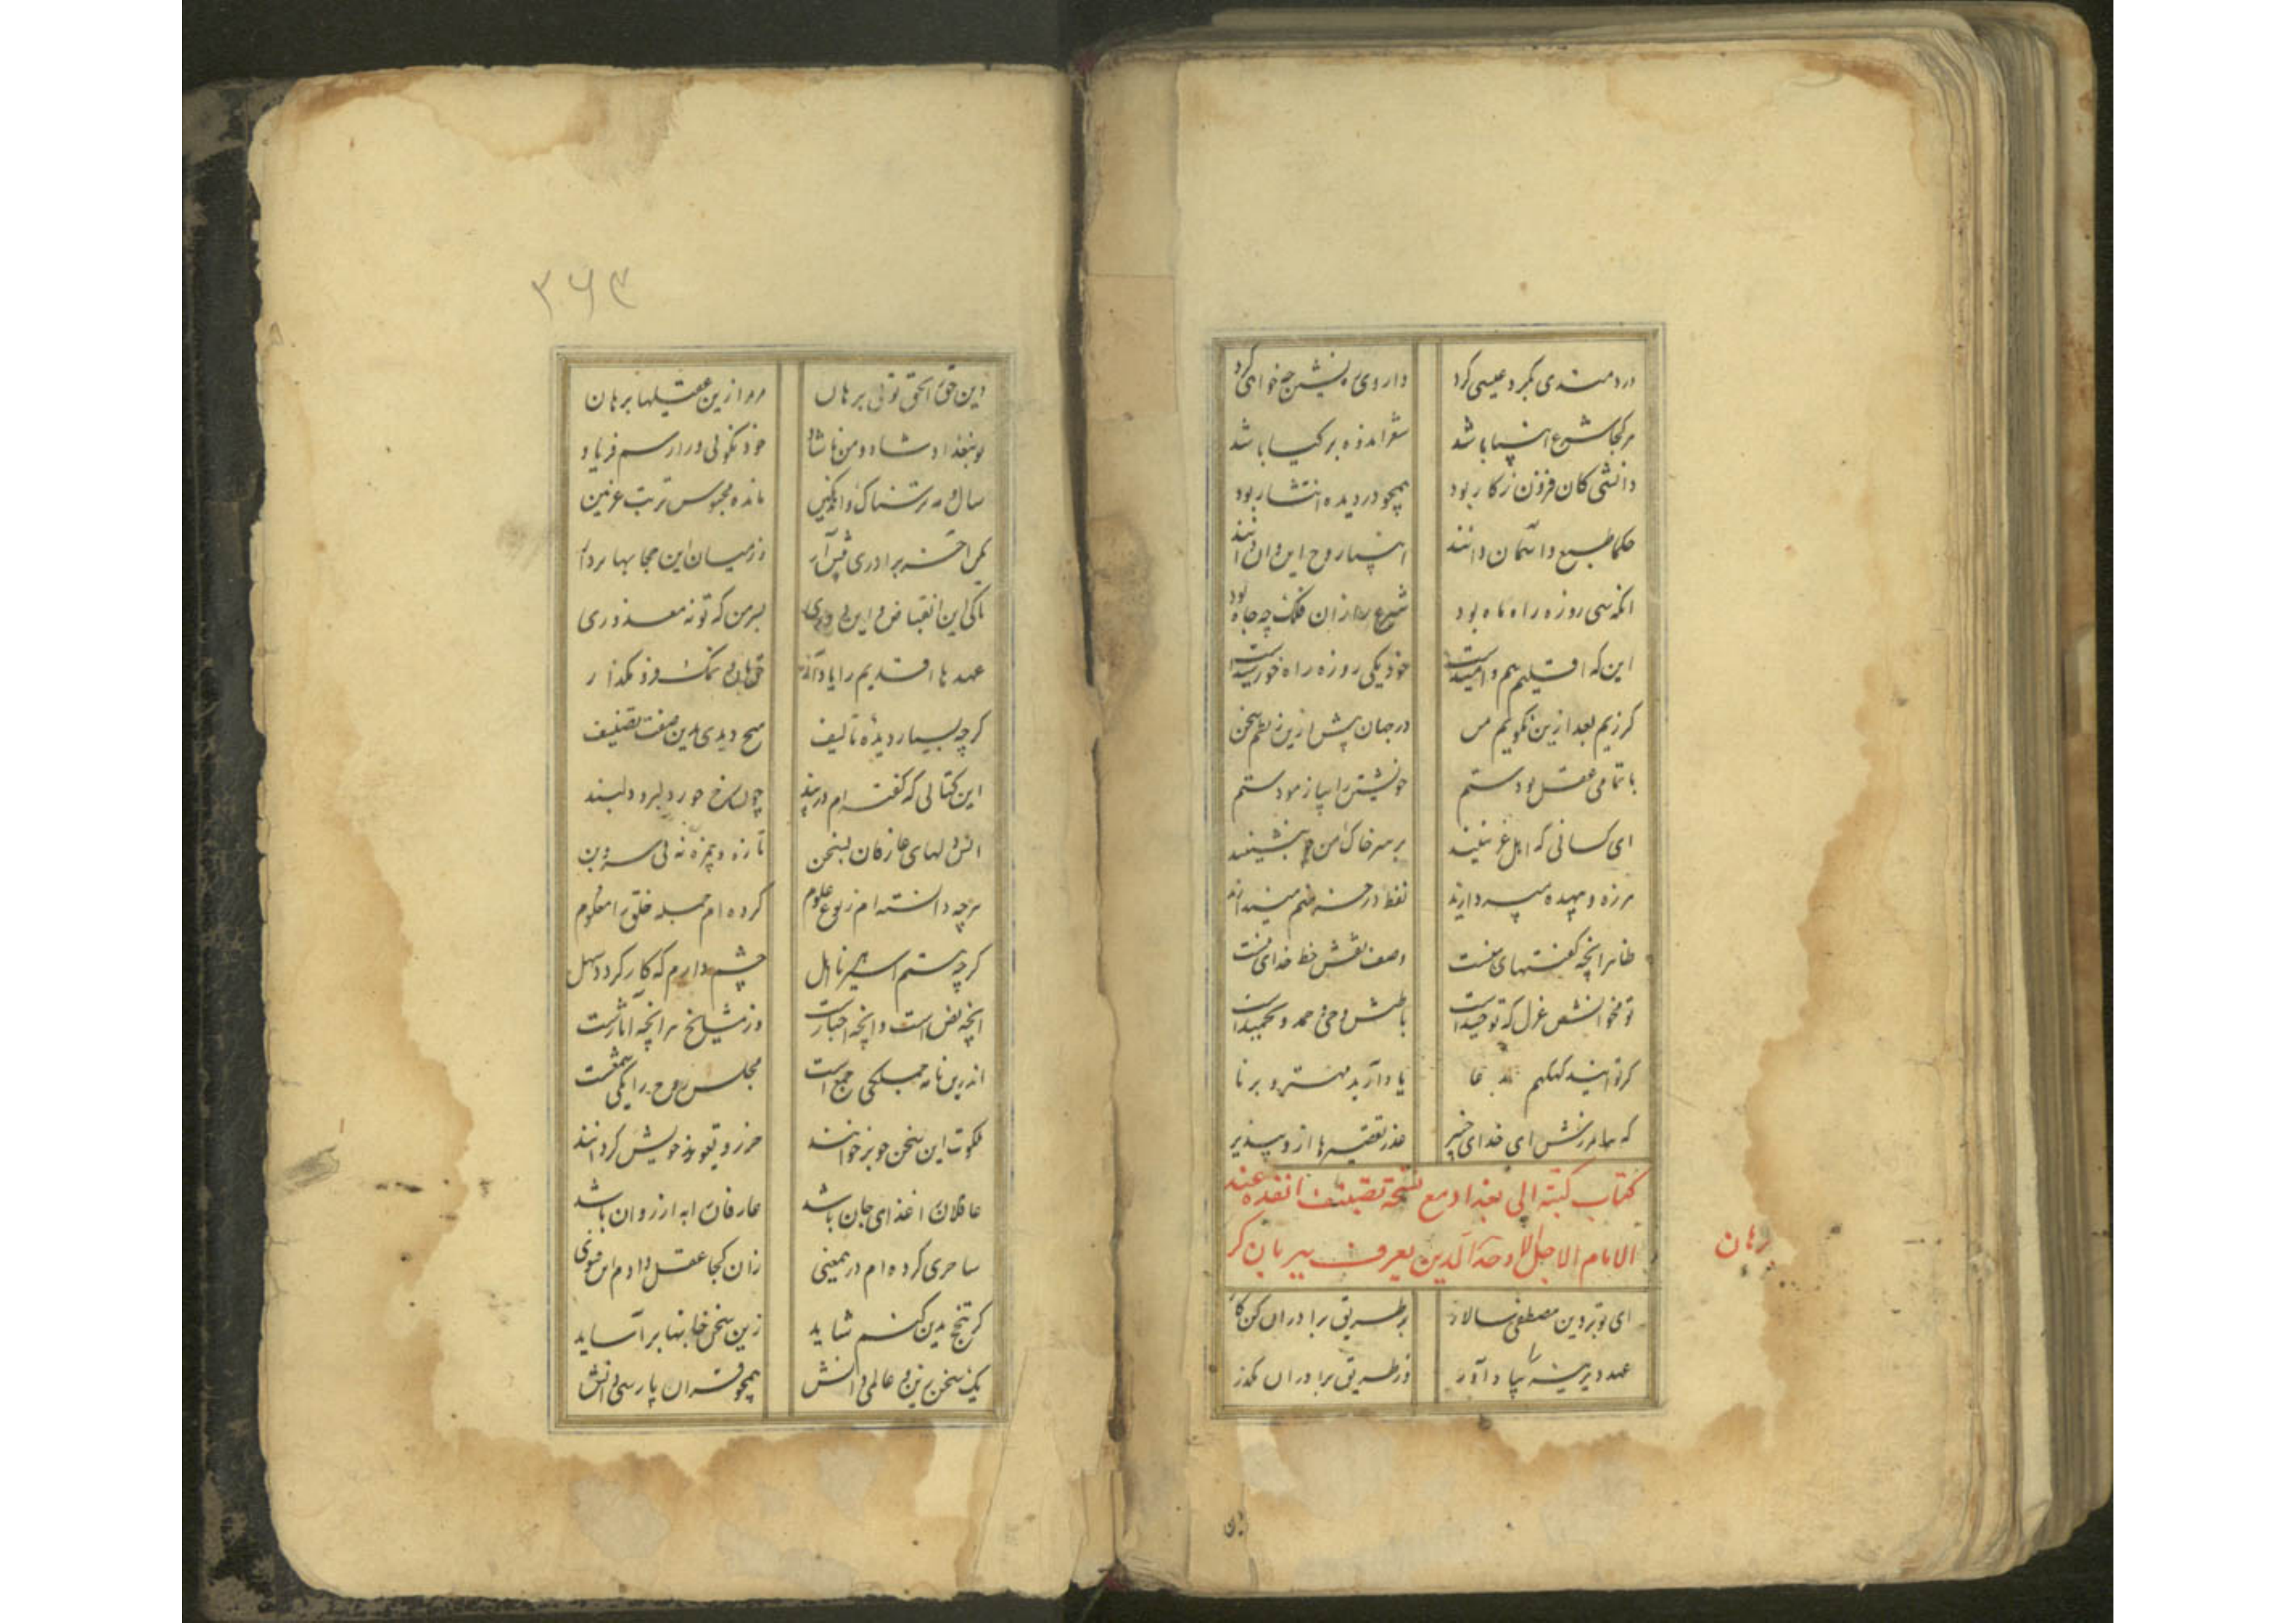 دردمندی بگرد عیسی گرد داروی خویشتن چه خواهی کرد
هرکجا شرع انبیا باشد شعرا مذره برکیا باشد
دانشی کان فزون زکار بود همچو در دیده انتشار بود
حکما طبع و آسمان دانند انبیا روح این و آن دانند
انکه سی روزه راه ماه بود شرع را زان فلک چه جاه بود
این که اقلیم بیم و امیدست خود یکی روزه راه خورشیدست
کر زیم بعد ازین نکویم من در جهان پیش ازین ز نظم سخن
با تمامی عقل بودستم خویشتن را بیازمودستم
ای کسانی که اهل غزنینید بر سر خاک من چو بنشینید
هرزه و بیهده میندارید لفظ
ظاهرا انچه کفتهای منست وصف نقش خط خدای منست
تو مخوانش غزل که توحیدست باطنش وحی و حمد و تمجیدست
کر توانید کهکهم یاد آرید مهتر و برنا
که بیامرزش ای خدای خبیر عذر تقصیرها ازو بپذیر
کتاب کتبه الی بغداد مع نسخة تصنیف انفده عند
الامام الاجل الاوحد الدین یعرف ببریان کر
برهان
ای تو بر دین مصطفی سالار بر طریق برادران کن کار
عهد دیرینه را بیاد آور وز طریق برادران مگذر
۳۶۳
دین حق را بحق توئی برهان مرا زین عقیلها برهان
تو ببغداد شاد و من ناشاد خود نکوئی ورا رسم فریاد
سال و مه ترسناک و اندهگین مانده محبوس تربت غزنین
مر مرا اخر برادری پیش آر وز میان این حجابها بردار
تا کی این انقباض و این دوری بر من که تو نه معذوری
عهدهای قدیم را یاد آر حق نان و نمک فرو مکذار
کرچه بسیار دیدهٔ تالیف هیچ دیدی بدین صفت تصنیف
این کتابی که کفته ام در پند چون رخ حور دلبر و دلبند
انس دلهای عارفان بسخن تازه و بامزه نه بی سر و بن
هرچه دانسته ام ز نوع علوم کرده ام جمله خلق را معلوم
کرچه هستم اسیر نااهل چشم دارم که کار کردد سهل
انچه نص است و انچه اخبارست وز مشایخ هر انچه آثارست
اندرین نامه جملگی جمع است مجلس روح را یکی شمعست
ملکوت این سخن چو برخوانند حرز و تعویذ خویش کردانند
عاقلان را غذای جان باشد عارفان را به از روان باشد
ساحری کرده ام درین معنی زان کجا عقل دادم این فتوی
کر تنجح بدین کنم شاید زین سخن جانها بر آساید
یک سخن زین و عالمی دانش همچو قرآن پارسی دانش